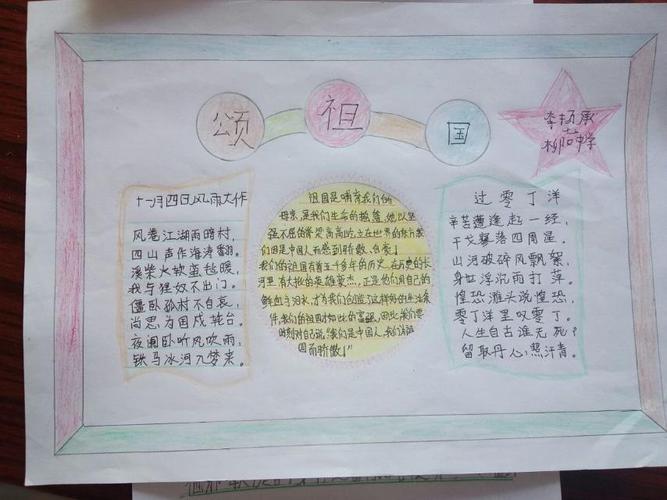 颂祖国
李拓承
柳芭中学
十一月四日风雨大作
风卷江湖雨暗村,
四山声作海涛翻。
溪柴火软蛮毡暖,
我与狸奴不出门。
僵卧孤村不自哀,
尚思为国戍轮台。
夜阑卧听风吹雨,
铁马冰河入梦来。
祖国是哺育我们的
母亲,是我们生命的摇篮,她以坚
强不屈的脊梁高高屹立在世界的东方我
们因是中国人而感到骄傲、自豪!
我们的祖国有着五千多年的历史,在历史的长
河里,有大批的英雄豪杰,正是他们用自己的
鲜血与泪水,才为我们创造了这样好的生活条
件,我们的祖国才如此的富强,因此我们要
时刻对自己说:"我们是中国人,我们为祖
国而骄傲!"
过零丁洋
辛苦遭逢起一经,
干戈寥落四周星。
山河破碎风飘絮,
身世浮沉雨打萍。
惶恐滩头说惶恐,
零丁洋里叹零丁。
人生自古谁无死?
留取丹心照汗青。